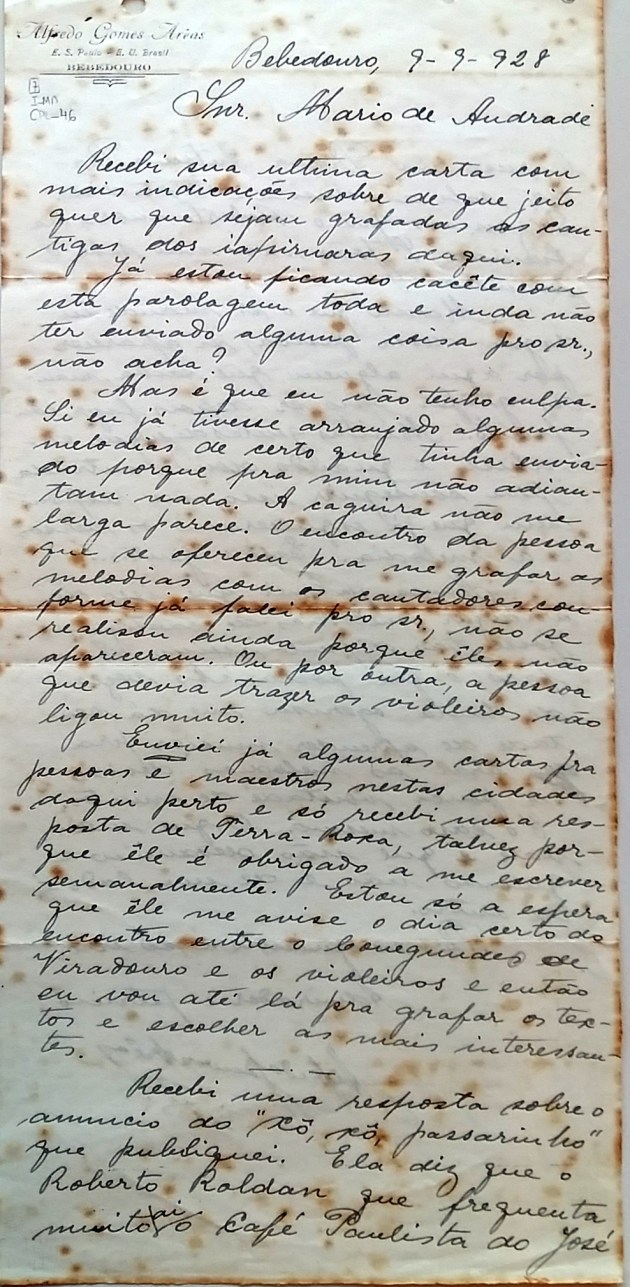 Alfredo Gomes Arêas
E. S. Paulo - E. U. Brasil
BEBEDOURO
7
I-MA
CPL-46
Bebedouro, 9-9-928
Snr. Mario de Andrade
Recebi sua ultima carta com
mais indicações sobre de que jeito
quer que sejam grafadas as can-
tigas dos daqui.
Já estou ficando cacête com
esta parolagem toda e inda não
ter enviado alguma coisa pro sr.,
não acha?
Mas é que eu não tenho culpa.
Si eu já tivesse arranjado algumas
melodias de certo que tinha envia-
do porque pra mim não adian-
tam nada. A caguira não me
larga parece. O encontro da pessoa
que se ofereceu pra me grafar as
melodias com os cantadores con-
forme já falei pro sr, não se
realisou ainda porque êles não
apareceram. Ou por outra, a pessoa
que devia trazer os violeiros não
ligou muito.
Enviei já algumas cartas pra
pessoas e maestros nestas cidades
daqui perto e só recebi uma res-
posta de Terra-Roxa, talvez por-
que êle é obrigado a me escrever
semanalmente. Estou só a espera
que êle me avise o dia certo do
encontro entre o Conegundes de
Viradouro e os violeiros e então
eu vou até lá pra grafar os tex-
tos e escolher as mais interessan-
tes.
Recebi uma resposta sobre o
anuncio do "xô, xô, passarinho"
que publiquei. Ela diz que o
Roberto Roldan que frequenta
muito ai o Café Paulista do José